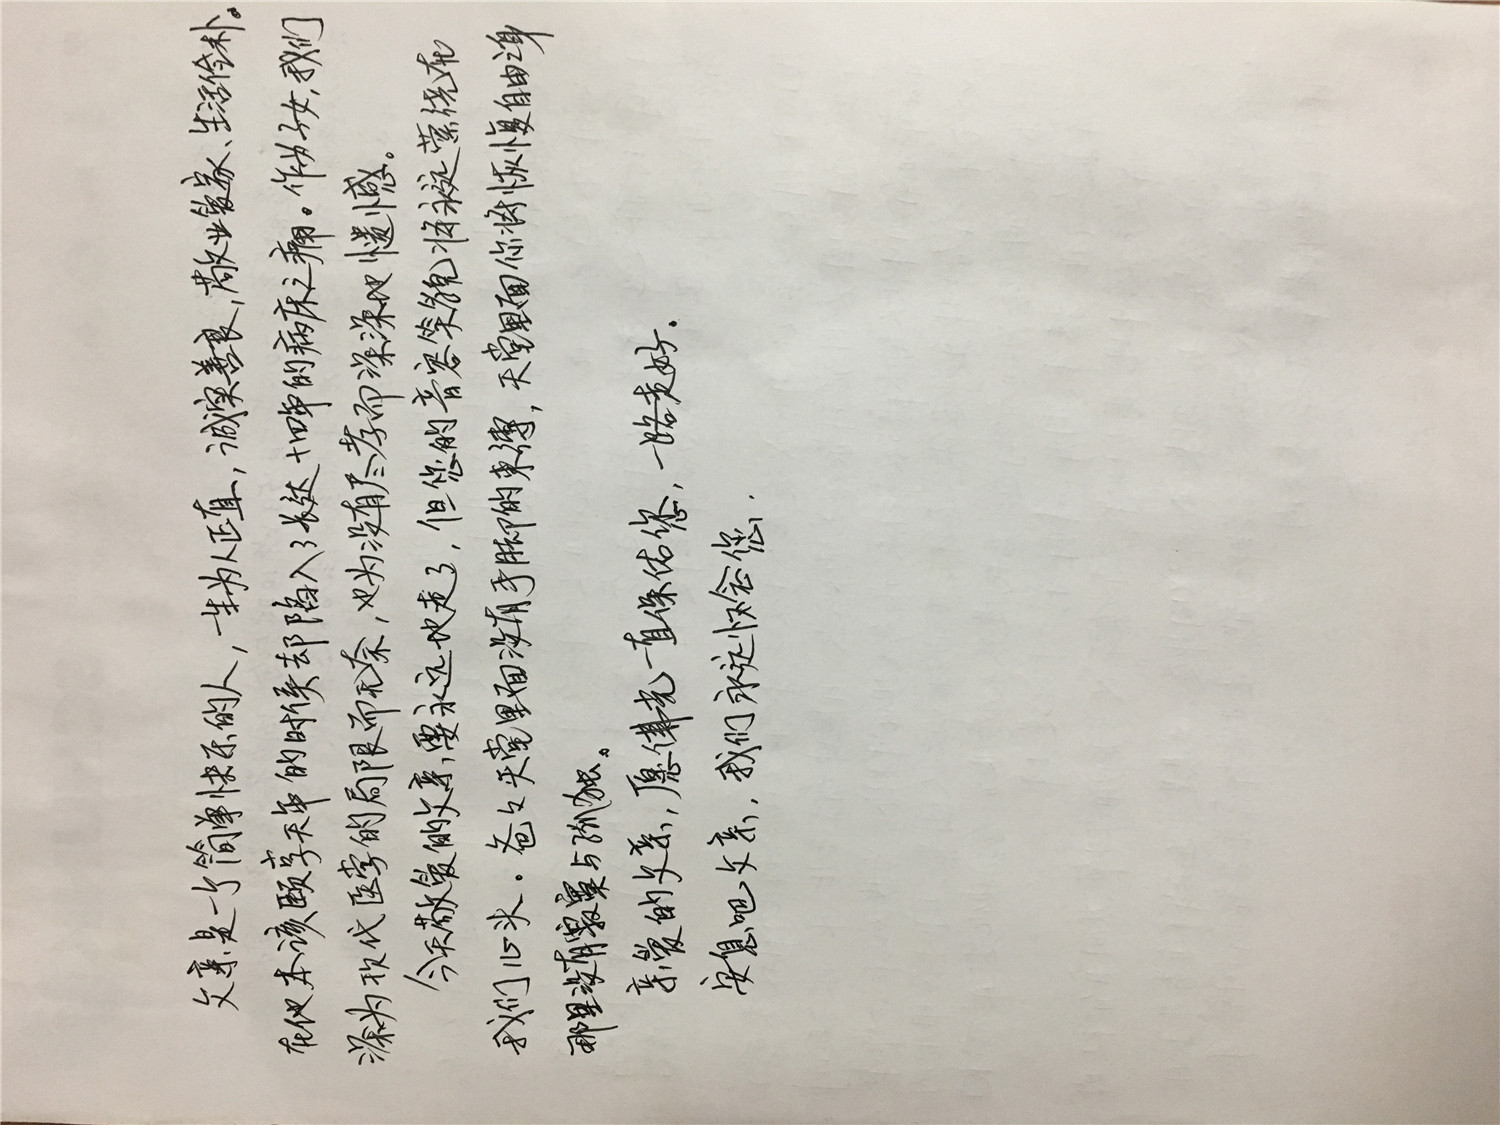 父亲是一个简单快乐的人，一生为人正直，诚实善良，敬业爱家、生活俭朴。
在他本该颐享天年的时候却陷入了长达十四年的病床之痛。作为子女，我们
深为现代医学的局限而无奈，也为没有尽孝而深深地憾。
今天敬爱的父亲，要永远地走了，但您的音容笑貌将永远萦绕在
我们心头。爸爸天堂里面没有手脚的束缚，天堂里面你将恢复自由之身
那里没有寂寞与孤独。
亲爱的父亲，愿佛光一直保佑您，一路走好。
安息吧父亲，我们永远怀念您。